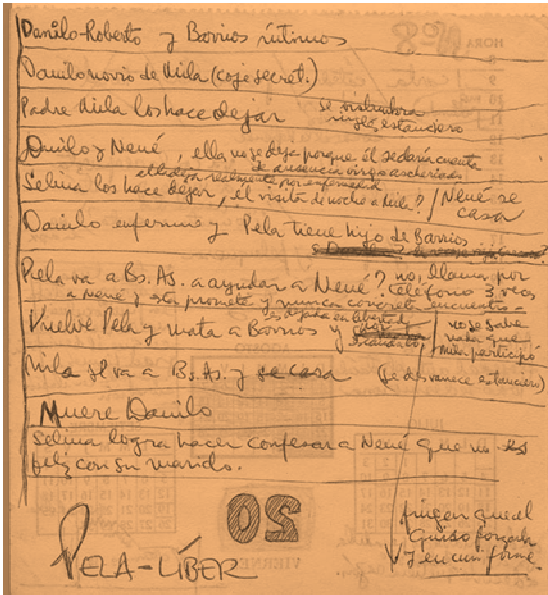 Danilo-Roberto y Barrios íntimos
Danilo novio de Mila (coje secret.)
Padre Mila los hace dejar
se vislumbra
inglés estanciero
Danilo y Nené, ella no se deja porque él se daría cuenta
de ausencia virgo ascheriados
él la deja realmente por enfermedad
Selina los hace dejar, él visita de noche a Mila? / Nené se
casa
Danilo enfermo y Pela tiene hijo de Barrios
Pela va a Bs. As. a ayudar a Nené? no, llama por
teléfono 3 veces
a Nené y esta promete y nunca concreta encuentro
Vuelve Pela y mata a Barrios y
es dejada en libertad
no se sabe
nada que
Mila participó
Mila se va a Bs. As. y se casa (se desvanece estanciero)
Muere Danilo
Selina logra hacer confesar a Nené que no es
feliz con su marido.
fingen que él
quiso forzarla
PELA-LÍBER
HORA Nº 8
AGOSTO
20
VIERNES